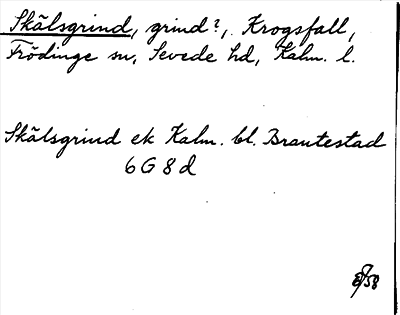 Skälsgrind, grind?, Krogsfall,
Frödinge sn, Sevede hd, Kalm. l.
Skälsgrind ek Kalm. bl. Brantestad
6 G 8 d
58